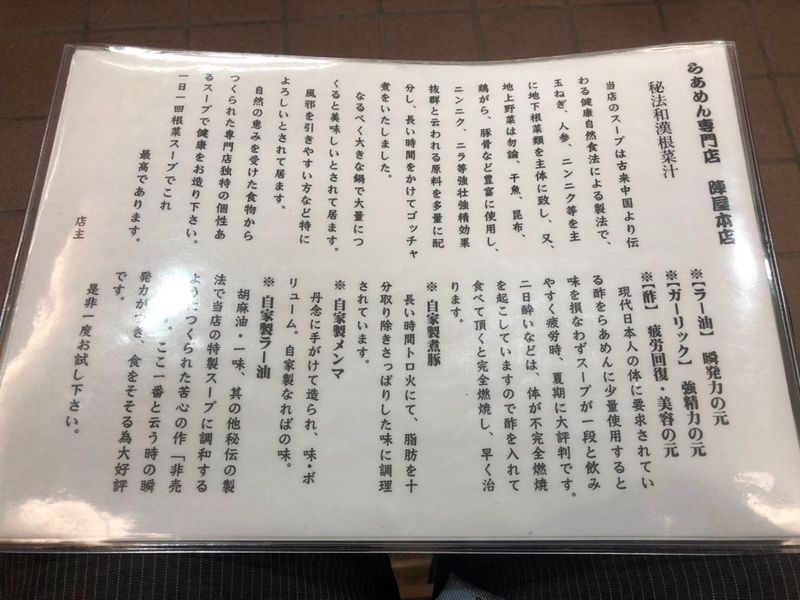 らあめん専門店 陣屋本店
秘法和漢根菜汁
当店のスープは古来中国より伝
わる健康自然食法による製法で、
玉ねぎ、人参、ニンニク等を主
に地下根菜類を主体に致し、又、
地上野菜は勿論、干魚、昆布、
鶏がら、豚骨など豊富に使用し、
ニンニク、ニラ等強壮強精効果
抜群と云われる原料を多量に配
分し、長い時間をかけてゴッチャ
煮をいたしました。
なるべく大きな鍋で大量につ
くると美味しいとされて居ます。
風邪を引きやすい方など特に
よろしいとされて居ます。
自然の恵みを受けた食物から
つくられた専門店独特の個性あ
るスープで健康をお造り下さい。
一日一回根菜スープでこれ
最高であります。
店主
※【ラー油】 瞬発力の元
※【ガーリック】 強精力の元
※【酢】 疲労回復・美容の元
現代日本人の体に要求されてい
る酢をらあめんに少量使用すると
味を損なわずスープが一段と飲み
やすく疲労時、夏期に大評判です。
二日酔いなどは、体が不完全燃焼
を起こしていますので酢を入れて
食べて頂くと完全燃焼し、早く治
ります。
※ 自家製煮豚
長い時間トロ火にて、脂肪を十
分取り除きさっぱりした味に調理
されています。
※ 自家製メンマ
丹念に手がけて造られ、味・ボ
リューム。自家製なればの味。
※ 自家製ラー油
胡麻油・一味、其の他秘伝の製
法で当店の特製スープに調和する
ようにつくられた苦心の作「非売
。ここ一番と云う時の瞬
発力がつき、食をそそる為大好評
です。
是非一度お試し下さい。